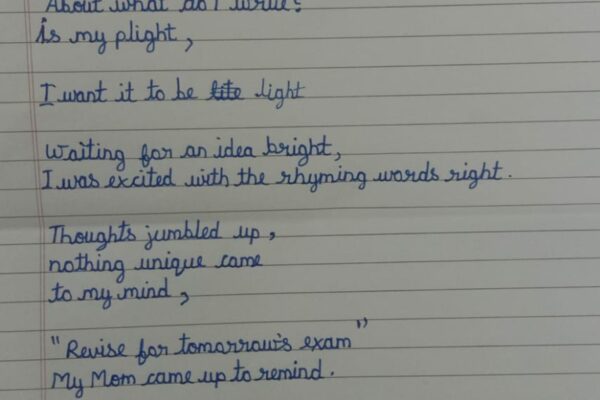 About what do I write?
is my plight,
I want it to be light
Waiting for an idea bright,
I was excited with the rhyming words right.
Thoughts jumbled up,
nothing unique came
to my mind,
"Revise for tomorrow's exam"
My Mom came up to remind.